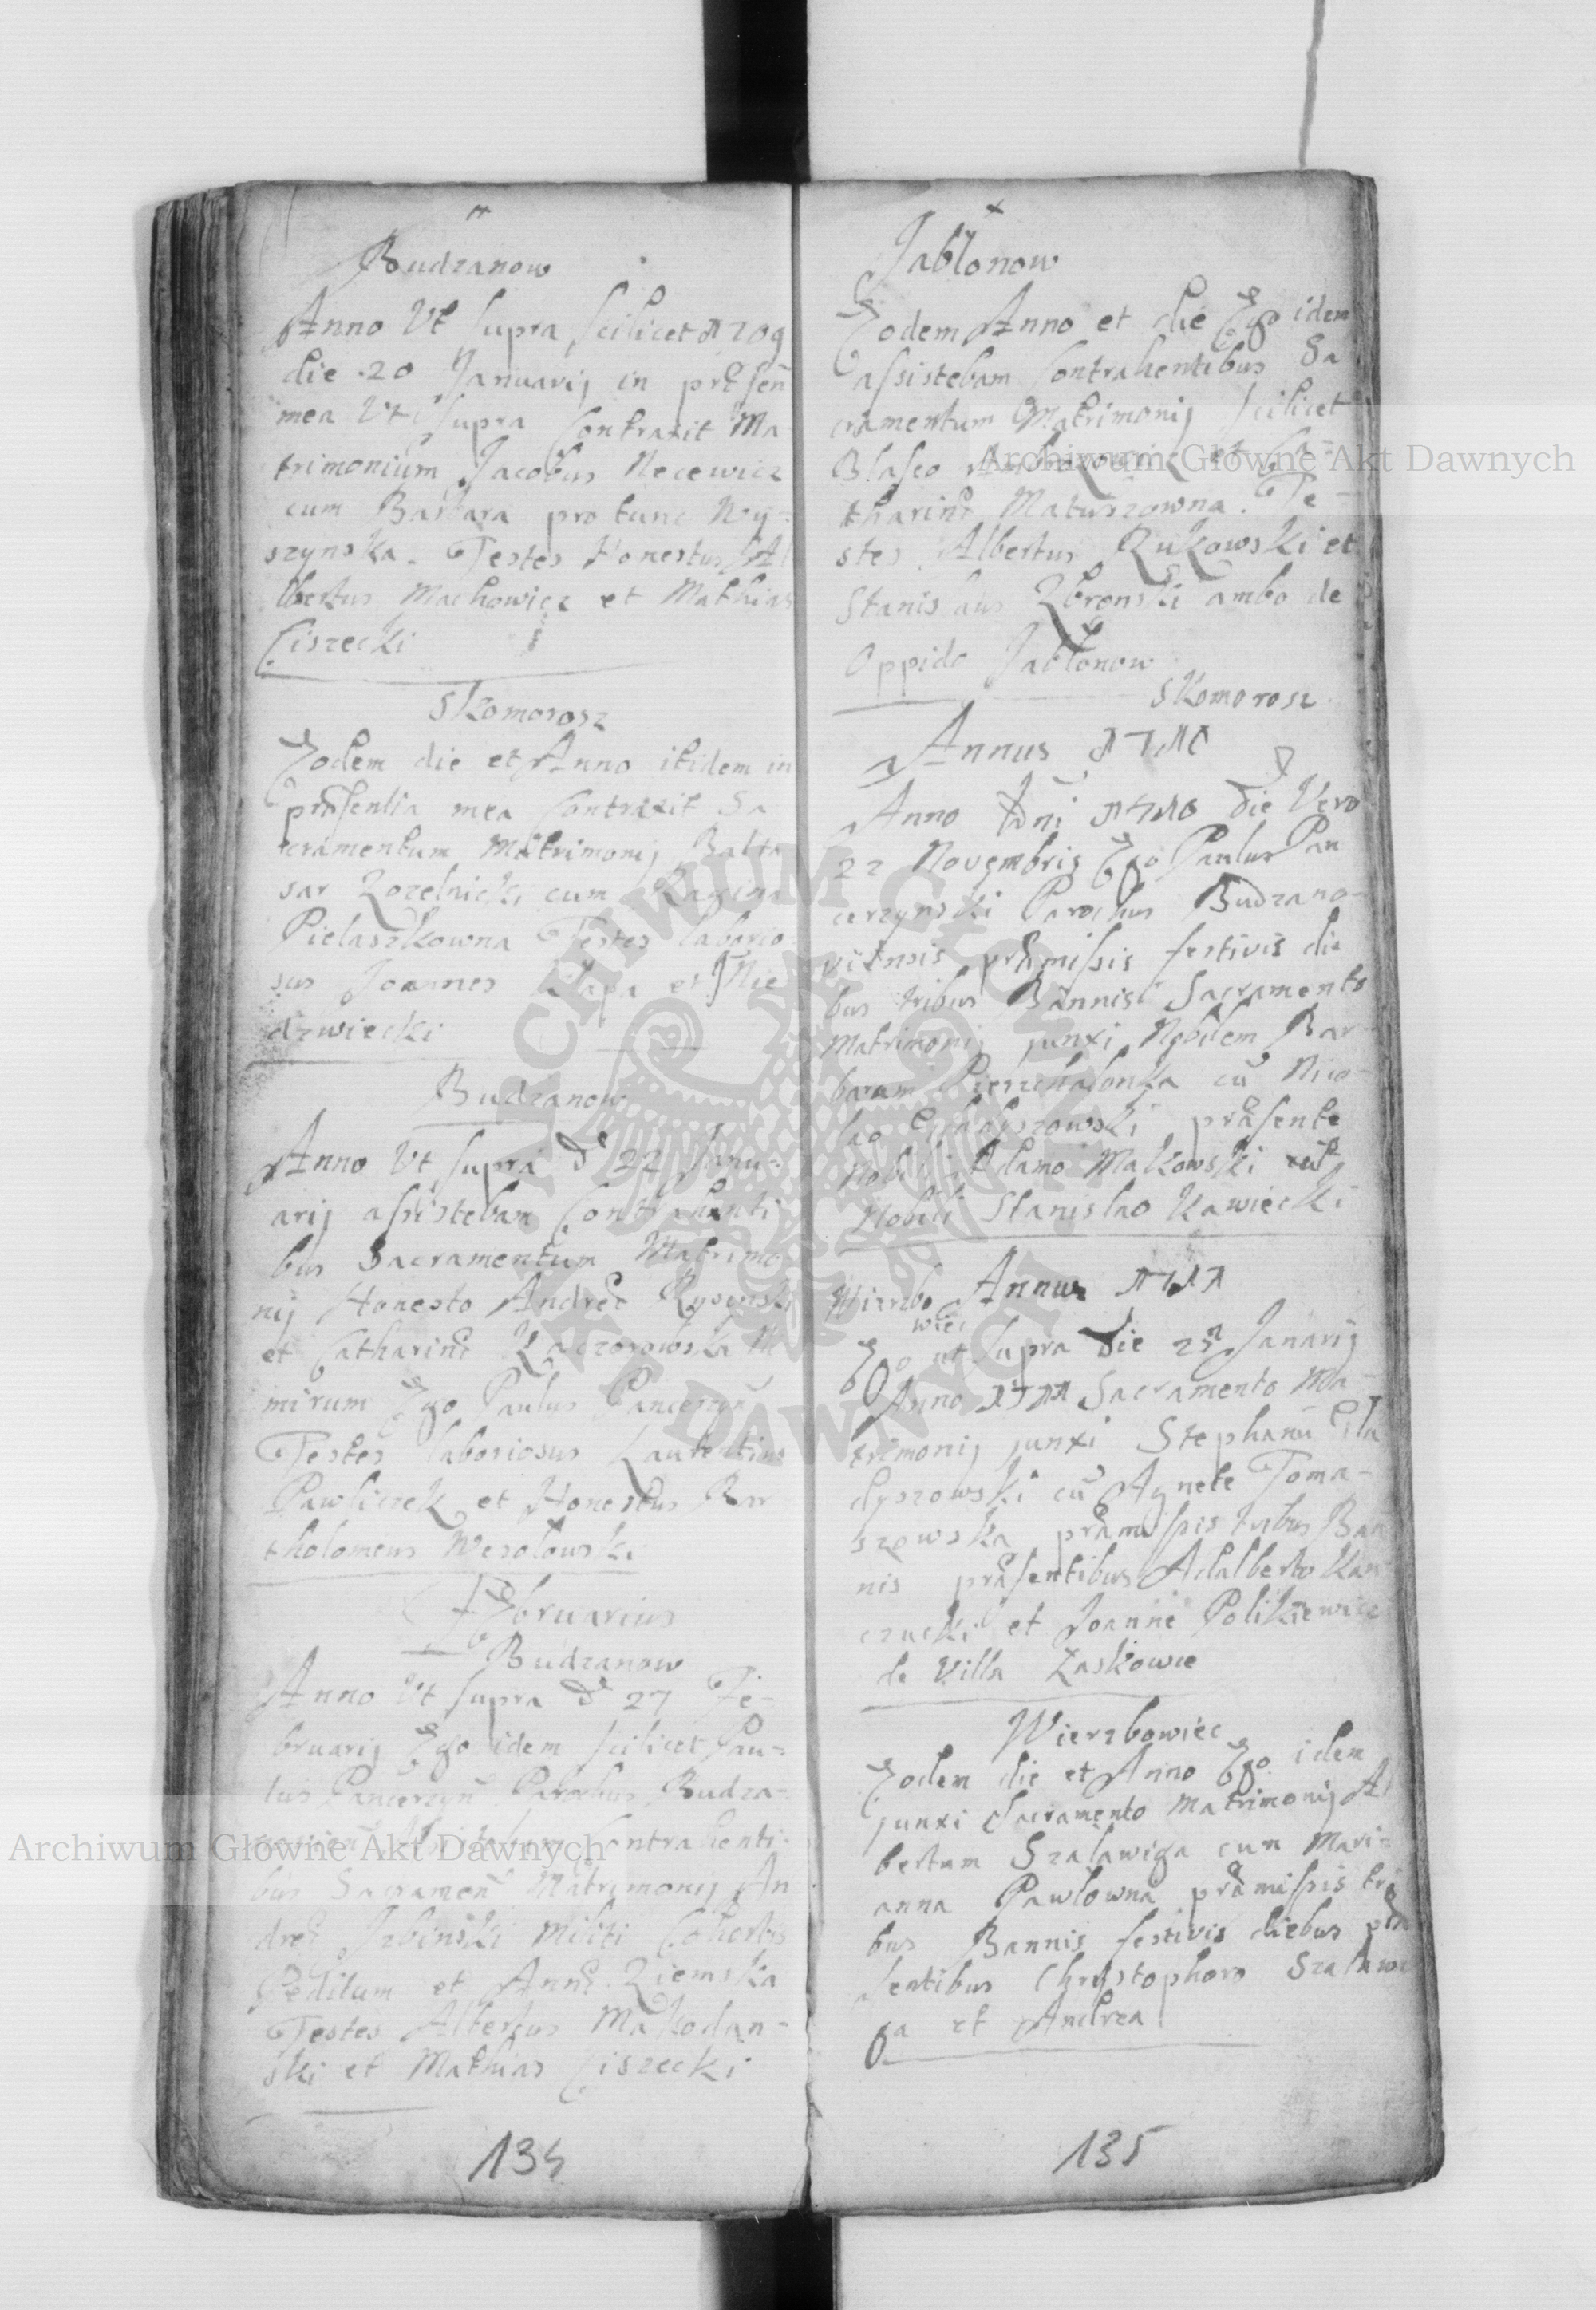 Budzanow
Anno Vt supra scilicet 1709
die 20 Januarij in præsen
mea Vt supra Contraxit Ma
trimonium Jacobus Necewicz
cum Barbara pro tunc Wy-
szynska. Testes Honestus Al
bertus Machowicz et Mathias
Ciszecki
Skomorosz
Eodem die et Anno itidem in
præsentia mea Contraxit Sa
cramentum Matrimonij Balta
sar Kozelnicki cum Regina
Pielaszkowna Testes laborio
sus Joannes et Nie
dzwiecki
Budzanow
Anno Vt supra d 22 Janu-
arij assistebam Contrahenti
bus Sacramentum Matrimo
nij Honesto Andreæ
et Catharinæ Kaczorowska Ni
mirum Ego Paulus Pancerzyn
Testes laboriosus Laurentius
Pawliczek et Honestus Bar
tholomeus Wesolowski
Februarius
Budzanow
Anno Vt supra d 27 Fe-
bruarij Ego idem scilicet Pau-
lus Pancerzyn Parochus Budza-
Contrahenti-
bus Sacramen Matrimonij An
dreæ Militi Cohortis
Peditum et Annæ Ziemska
Testes Albertus Makodan-
ski et Mathias Ciszecki
134
Jabłonow
Eodem Anno et die Ego idem
assistebam Contrahentibus Sa
cramentum Matrimonij scilicet
Blaseo et Ca-
tharinæ Matuszowna. Te-
stes Albertus Zukowski et
Stanislaus Zbronski ambo de
Oppido Jabłonow
Skomorosz
Annus 1710
Anno Dni 1710 die Vero
22 Novembris Ego Paulus Pan
cerzynski Parochus Budzano-
viensis præmissis festivis die
bus tribus Bannis Sacramento
Matrimonij junxi Nobilem Bar
baram cū Nico-
lao præsente
Nobili Adamo Malkowski
Nobili Stanislao Kawiecki
Annus 1711
Wierzbo
wiec
Ego ut supra die 25 Janarij
Anno 1711 Sacramento Ma-
trimonij junxi Stephanū Ila
dyszowski cū Agnete Toma-
szewska præmissis tribus Ban
nis præsentibus Adalberto Kan
czucki et Joanne Polikiewicz
de Villa Laskowce
Wierzbowiec
Eodem die et Anno Ego idem
junxi Sacramento Matrimonij Al
bertum Szaławiga cum Mari-
anna Pawłowna præmissis tri
bus Bannis festivis diebus præ
sentibus Christophoro Szaławi
ga et Andrea
135
Archiwum Główne Akt Dawnych
Archiwum Główne Akt Dawnych
ARCHIWUM GŁÓWNE AKT DAWNYCH